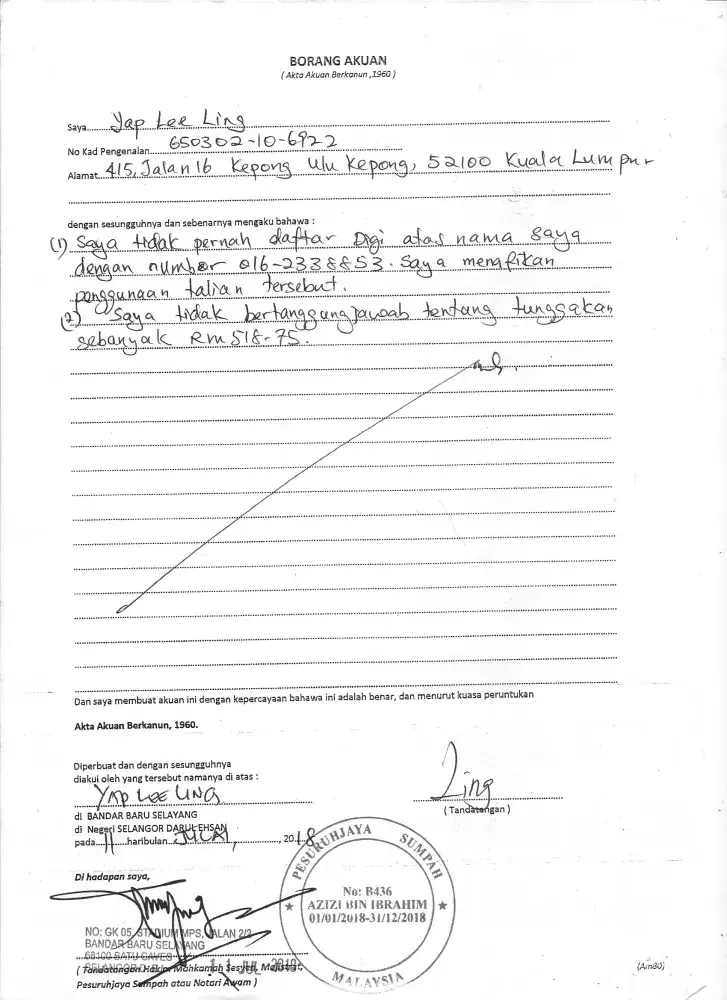 BORANG AKUAN
( Akta Akuan Berkanun ,1960 )
Saya Yap Lee Ling
No Kad Pengenalan 650302-10-6922
Alamat 415, Jalan 16 Kepong Ulu Kepong, 52100 Kuala Lumpur
dengan sesungguhnya dan sebenarnya mengaku bahawa :
(1) Saya tidak pernah daftar Digi atas nama saya
dengan number 016-2338853. Saya menafikan
penggunaan talian tersebut.
(2) Saya tidak bertanggungjawab tentang tunggakan
sebanyak RM 518-75.
Dan saya membuat akuan ini dengan kepercayaan bahawa ini adalah benar, dan menurut kuasa peruntukan
Akta Akuan Berkanun, 1960.
Diperbuat dan dengan sesungguhnya
diakui oleh yang tersebut namanya di atas :
YAP LEE LING
Ling
( Tandatangan )
di BANDAR BARU SELAYANG
di Negeri SELANGOR DARUL EHSAN
pada 11 haribulan JULAI, 2018
PESURUHJAYA SUMPAH
No: B436
AZIZI BIN IBRAHIM
01/01/2018-31/12/2018
MALAYSIA
Di hadapan saya,
NO: GK 05, STADIUM MPS, JALAN 2/2
BANDAR BARU SELAYANG
68100 BATU CAVES
SELANGOR
11 JUL 2018
( Tandatangan Hakim Mahkamah Sesyen, Majistret,
Pesuruhjaya Sumpah atau Notari Awam )
(Ain80)